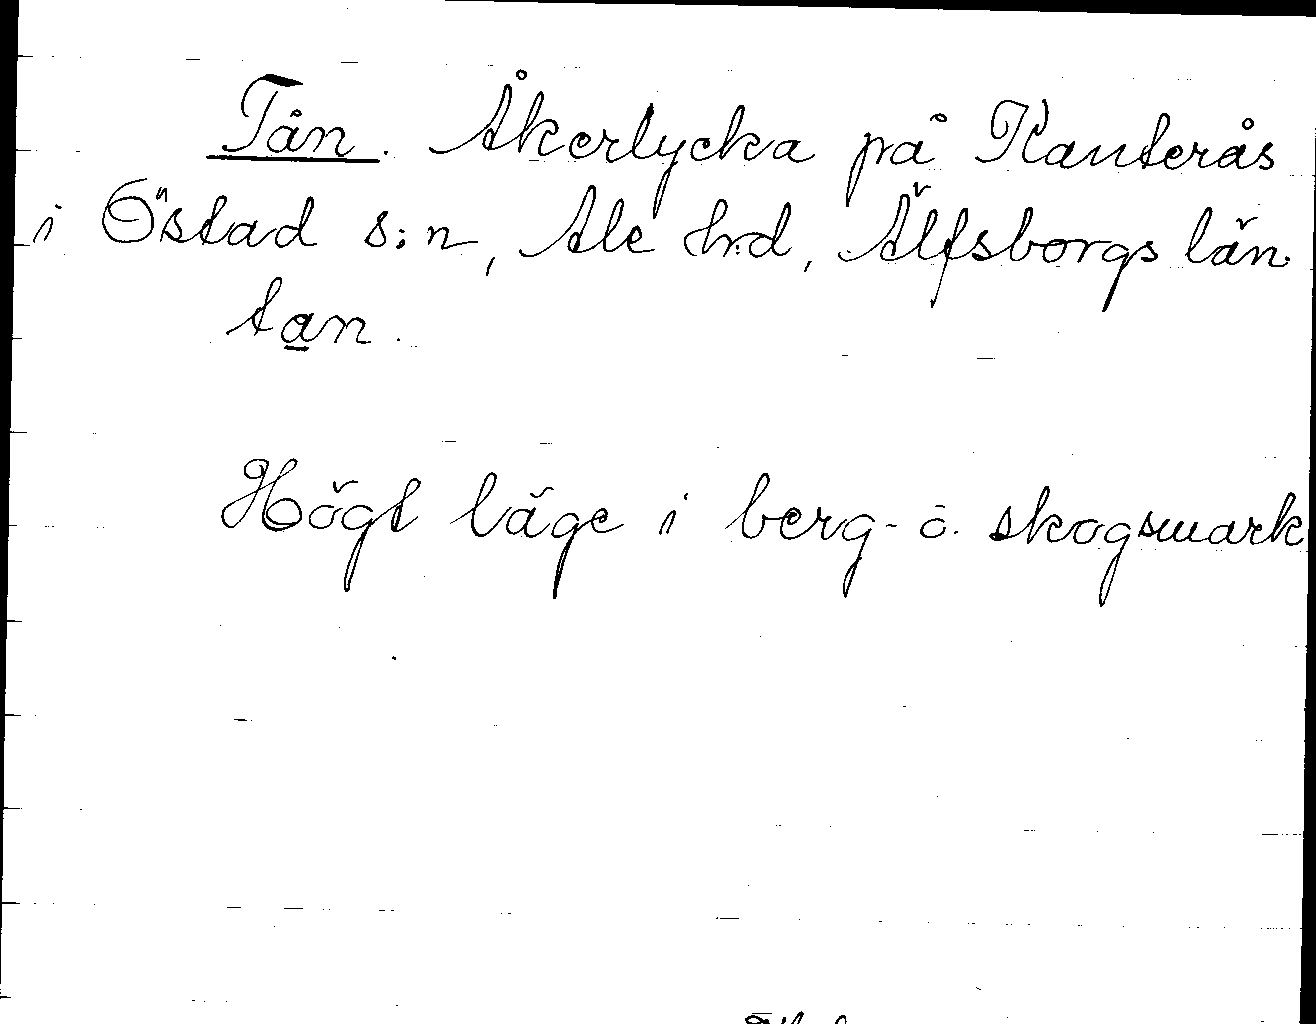 Tån. Åkerlycka på Kanterås
i Östad s:n, Ale hd, Älfsborgs län.
tan.
Högt läge i berg- o. skogsmark